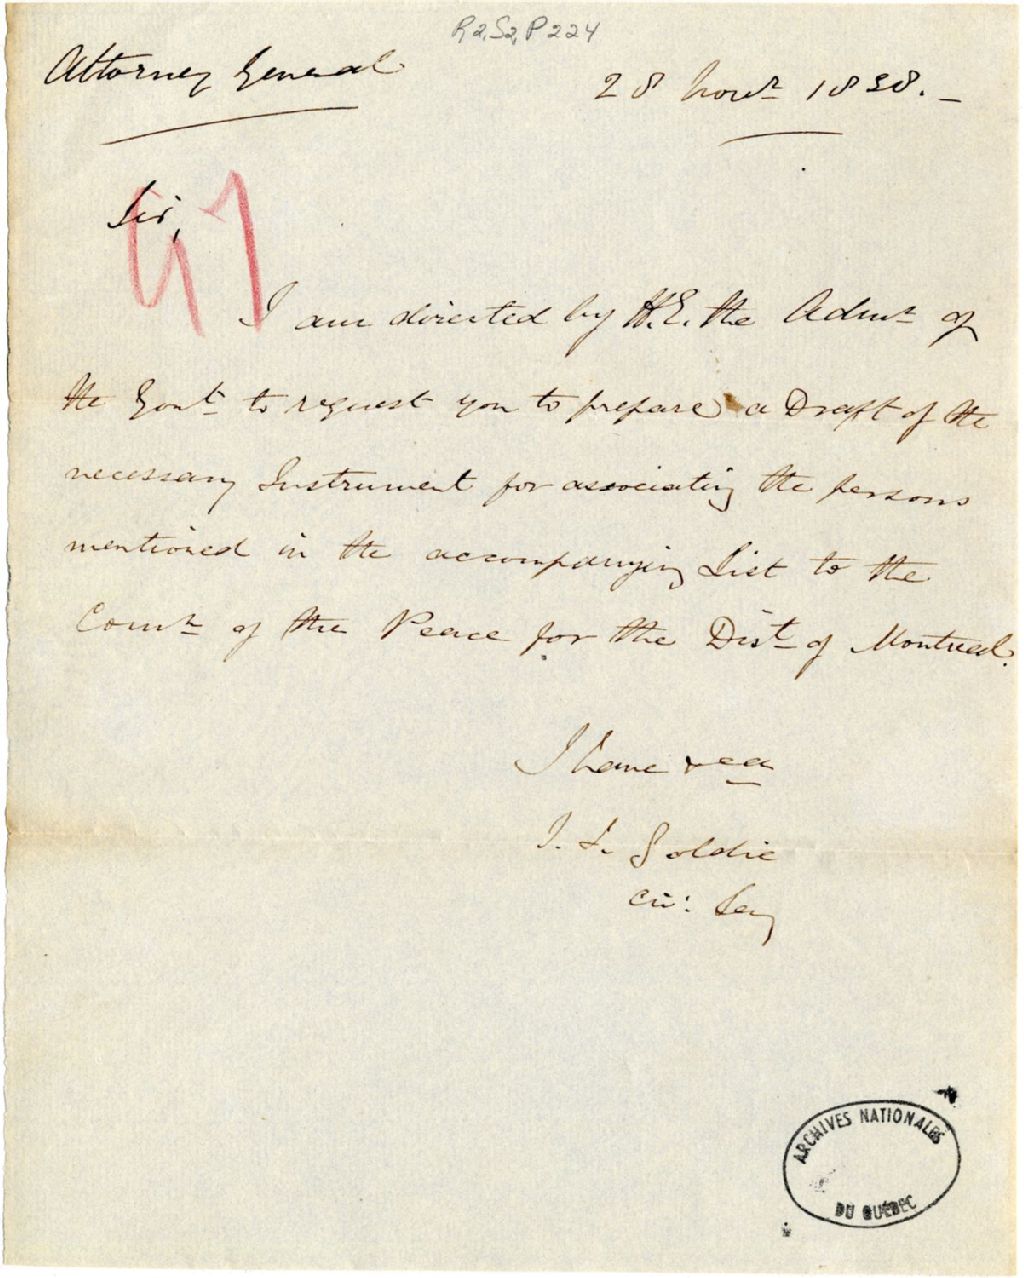 R2,S2,P224
Attorney General
28 Novr. 1838. -
97
Sir,
I am directed by H.E. the Admr. of
the Govt. to request you to prepare a Draft of the
necessary Instrument for associating the persons
mentioned in the accompanying List to the
Comn. of the Peace for the Dist. of Montreal.
I have &ca
T. L. Goldie
Civ: Secy
ARCHIVES NATIONALES
DU QUÉBEC